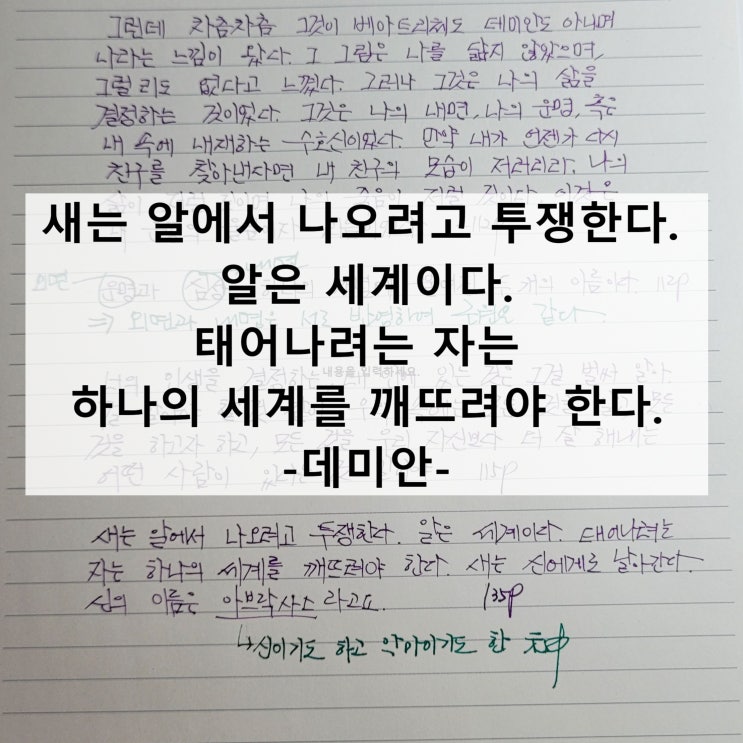 그런데 차츰차츰 그것이 베아트리체도 데미안도 아니며
나라는 느낌이 왔다. 그 그림은 나를 닮지 않았으며,
그럴 리도 없다고 느꼈다. 그러나 그것은 나의 삶을
결정하는 것이었다. 그것은 나의 내면, 나의 운명, 혹은
내 속에 내재하는 수호신이었다. 만약 내가 언젠가 다시
친구를 찾아낸다면 내 친구의 모습이 저러리라. 나의
새는 알에서 나오려고 투쟁한다.
알은 세계이다.
태어나려는 자는
내용을 입력하세요.
하나의 세계를 깨뜨려야 한다.
-데미안-
외면
운명과 심성 개의 이름이다. 112p
⇒ 외면과 내면은 서로 반영하며 같다.
것을 하고자 하고, 모든 것을 우리 자신보다 더 잘 해내는
어떤 사람이 115p
새는 알에서 나오려고 투쟁한다. 알은 세계이다. 태어나려는
자는 하나의 세계를 깨뜨려야 한다. 새는 신에게로 날아간다.
신의 이름은 아브락사스라고요. 135p
↳신이기도 하고 악마이기도 한 존재